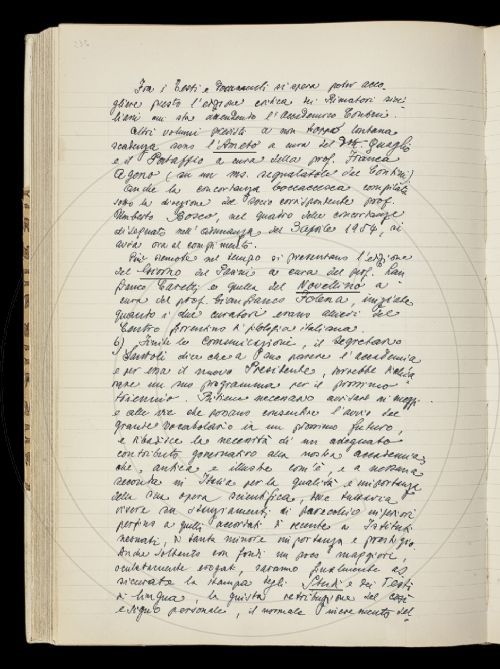 Fra i Testi e Documenti si spera poter acco-
gliere presto l'edizione critica dei Rimatori sici-
liani cui sta attendendo l'Accademico Contini.
Altri volumi previsti a non troppo lontana
scadenza sono l'Ameto a cura del Quaglio
e il Pataffio a cura della prof. Franca
Ageno (su un ms. segnalatole dal Contini)
Anche la concordanza boccaccesca compilata
sotto la direzione del Socio corrispondente prof.
Umberto Bosco, nel quadro delle concordanze
disegnato nell'adunanza del 3 aprile 1954, si
avvia ora al compimento.
Più remote nel tempo si presentano l'edizione
del Giorno del Parini a cura del prof. Lan
franco Caretti e quella del Novellino a
cura del prof. Gianfranco Folena, iniziate
quando i due curatori erano allievi del
Centro fiorentino di filologia italiana.
6) Finite le Comunicazioni, il Segretario
Santoli dice che a suo parere l'accademia
e per essa il nuovo Presidente, dovrebbe
un suo programma per il prossimo
triennio. Ritiene necessario avvisare ai mezzi
e alle vie che possano consentire l'avvio del
grande Vocabolario in un prossimo futuro,
e ribadisce la necessità di un adeguato
contributo governativo alla nostra accademia,
che, antica e illustre com'è, e a nessuna
seconda in Italia per la qualità e importanza
della sua opera scientifica, deve tuttavia
vivere su stanziamenti di parecchio inferiori
perfino a quelli accordati di recente a Istituti
neonati, di tanta minore importanza e prestigio.
Anche soltanto con fondi un poco maggiori,
oculatamente erogati, saranno finalmente as
sicurate la stampa degli Studi e dei Testi
di lingua, la giusta retribuzione del così
esiguo personale, il normale incremento del